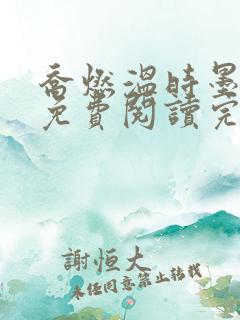 喬燃溫時墨
免費閱讀完
謝恒大
未经同意禁止转载